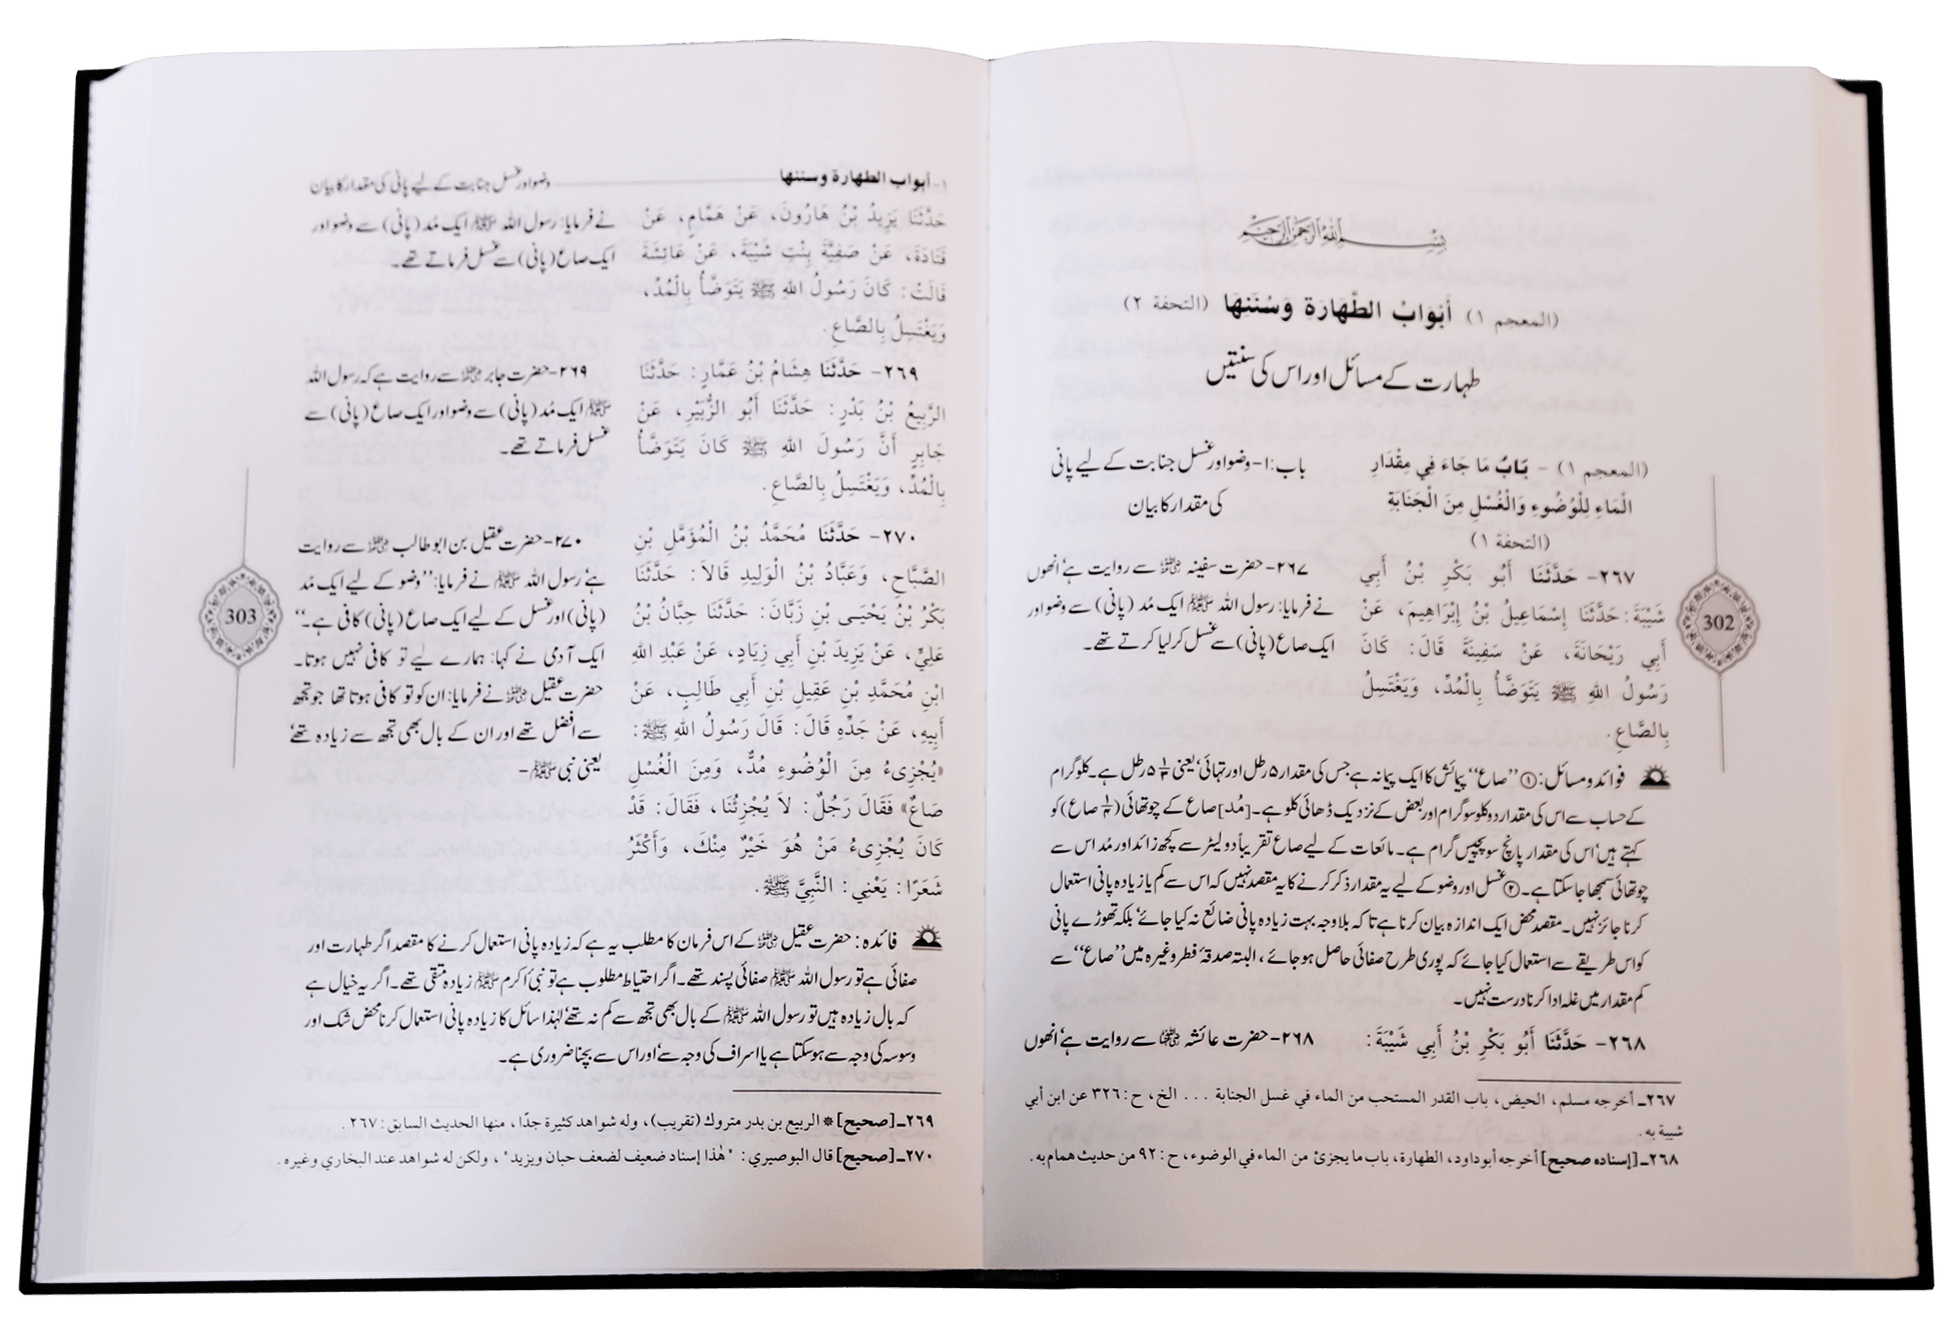 بسم الله الرحمن الرحيم
(المعجم ١) أَبْوَابُ الطَّهَارَةِ وَسُنَنِهَا (التحفة ٢)
طہارت کے مسائل اور اس کی سنتیں
(المعجم ١) - بَابُ مَا جَاءَ فِي مِقْدَارِ
الْمَاءِ لِلْوُضُوءِ وَالْغُسْلِ مِنَ الْجَنَابَةِ
(التحفة ١)
باب:۱- وضو اور غسل جنابت کے لیے پانی
کی مقدار کا بیان
٢٦٧- حَدَّثَنَا أَبُو بَكْرِ بْنُ أَبِي
شَيْبَةَ: حَدَّثَنَا إِسْمَاعِيلُ بْنُ إِبْرَاهِيمَ، عَنْ
أَبِي رَيْحَانَةَ، عَنْ سَفِينَةَ قَالَ: كَانَ
رَسُولُ اللهِ ﷺ يَتَوَضَّأُ بِالْمُدِّ، وَيَغْتَسِلُ
بِالصَّاعِ.
۲۶۷- حضرت سفینہ ؓ سے روایت ہے‘ انھوں
نے فرمایا: رسول اللہ ﷺ ایک مُد (پانی) سے وضو اور
ایک صاع (پانی) سے غسل کر لیا کرتے تھے۔
فوائد و مسائل: ① ’’صاع‘‘ پیمائش کا ایک پیمانہ ہے جس کی مقدار ۵ رطل اور تہائی‘ یعنی ۵ ۱/۳ رطل ہے۔ کلو گرام
کے حساب سے اس کی مقدار دو کلو سو گرام اور بعض کے نزدیک ڈھائی کلو ہے۔ [مُد] صاع کے چوتھائی (۱/۴ صاع) کو
کہتے ہیں‘ اس کی مقدار پانچ سو پچیس گرام ہے۔ مائعات کے لیے صاع تقریباً دو لیٹر سے کچھ زائد اور مُد اس سے
چوتھائی سمجھا جا سکتا ہے۔ ② غسل اور وضو کے لیے یہ مقدار ذکر کرنے کا یہ مقصد نہیں کہ اس سے کم یا زیادہ پانی استعمال
کرنا جائز نہیں۔ مقصد محض ایک اندازہ بیان کرنا ہے تاکہ بلاوجہ بہت زیادہ پانی ضائع نہ کیا جائے‘ بلکہ تھوڑے پانی
کو اس طریقے سے استعمال کیا جائے کہ پوری طرح صفائی حاصل ہو جائے، البتہ صدقۂ فطر وغیرہ میں ’’صاع‘‘ سے
کم مقدار میں غلہ ادا کرنا درست نہیں۔
٢٦٨- حَدَّثَنَا أَبُو بَكْرِ بْنُ أَبِي شَيْبَةَ:
۲۶۸- حضرت عائشہ ؓ سے روایت ہے‘ انھوں
٢٦٧ـ أخرجه مسلم، الحيض، باب القدر المستحب من الماء في غسل الجنابة ... الخ، ح: ٣٢٦ عن ابن أبي
شيبة به.
٢٦٨ـ [إسناده صحيح] أخرجه أبوداود، الطهارة، باب ما يجزئ من الماء في الوضوء، ح: ٩٢ من حديث همام به.
302
١- أبواب الطهارة وسننها
وضو اور غسل جنابت کے لیے پانی کی مقدار کا بیان
حَدَّثَنَا يَزِيدُ بْنُ هَارُونَ، عَنْ هَمَّامٍ، عَنْ
قَتَادَةَ، عَنْ صَفِيَّةَ بِنْتِ شَيْبَةَ، عَنْ عَائِشَةَ
قَالَتْ: كَانَ رَسُولُ اللهِ ﷺ يَتَوَضَّأُ بِالْمُدِّ،
وَيَغْتَسِلُ بِالصَّاعِ.
نے فرمایا: رسول اللہ ﷺ ایک مُد (پانی) سے وضو اور
ایک صاع (پانی) سے غسل فرماتے تھے۔
٢٦٩- حَدَّثَنَا هِشَامُ بْنُ عَمَّارٍ: حَدَّثَنَا
الرَّبِيعُ بْنُ بَدْرٍ: حَدَّثَنَا أَبُو الزُّبَيْرِ، عَنْ
جَابِرٍ أَنَّ رَسُولَ اللهِ ﷺ كَانَ يَتَوَضَّأُ
بِالْمُدِّ، وَيَغْتَسِلُ بِالصَّاعِ.
۲۶۹- حضرت جابر ؓ سے روایت ہے کہ رسول اللہ
ﷺ ایک مُد (پانی) سے وضو اور ایک صاع (پانی) سے
غسل فرماتے تھے۔
٢٧٠- حَدَّثَنَا مُحَمَّدُ بْنُ الْمُؤَمَّلِ بْنِ
الصَّبَّاحِ، وَعَبَّادُ بْنُ الْوَلِيدِ قَالَا: حَدَّثَنَا
بَكْرُ بْنُ يَحْيَى بْنِ زَبَّانَ: حَدَّثَنَا حِبَّانُ بْنُ
عَلِيٍّ، عَنْ يَزِيدَ بْنِ أَبِي زِيَادٍ، عَنْ عَبْدِ اللهِ
ابْنِ مُحَمَّدِ بْنِ عَقِيلِ بْنِ أَبِي طَالِبٍ، عَنْ
أَبِيهِ، عَنْ جَدِّهِ قَالَ: قَالَ رَسُولُ اللهِ ﷺ:
«يُجْزِىءُ مِنَ الْوُضُوءِ مُدٌّ، وَمِنَ الْغُسْلِ
صَاعٌ» فَقَالَ رَجُلٌ: لَا يُجْزِئُنَا، فَقَالَ: قَدْ
كَانَ يُجْزِىءُ مَنْ هُوَ خَيْرٌ مِنْكَ، وَأَكْثَرُ
شَعَرًا: يَعْنِي: النَّبِيَّ ﷺ.
۲۷۰- حضرت عقیل بن ابو طالب ؓ سے روایت
ہے‘ رسول اللہ ﷺ نے فرمایا: ’’وضو کے لیے ایک مُد
(پانی) اور غسل کے لیے ایک صاع (پانی) کافی ہے۔‘‘
ایک آدمی نے کہا: ہمارے لیے تو کافی نہیں ہوتا۔
حضرت عقیل ؓ نے فرمایا: ان کو تو کافی ہوتا تھا جو تجھ
سے افضل تھے اور ان کے بال بھی تجھ سے زیادہ تھے‘
یعنی نبی ﷺ-
فائدہ: حضرت عقیل ؓ کے اس فرمان کا مطلب یہ ہے کہ زیادہ پانی استعمال کرنے کا مقصد اگر طہارت اور
صفائی ہے تو رسول اللہ ﷺ صفائی پسند تھے۔ اگر احتیاط مطلوب ہے تو نبیٔ اکرم ﷺ زیادہ متقی تھے۔ اگر یہ خیال ہے
کہ بال زیادہ ہیں تو رسول اللہ ﷺ کے بال بھی تجھ سے کم نہ تھے‘ لہٰذا سائل کا زیادہ پانی استعمال کرنا محض شک اور
وسوسہ کی وجہ سے ہو سکتا ہے یا اسراف کی وجہ سے‘ اور اس سے بچنا ضروری ہے۔
٢٦٩ـ [صحيح] * الربيع بن بدر متروك (تقريب)، وله شواهد كثيرة جدًا، منها الحديث السابق: ٢٦٧.
٢٧٠ـ [صحيح] قال البوصيري: "هٰذا إسناد ضعيف لضعف حبان ويزيد"، ولكن له شواهد عند البخاري وغيره.
303